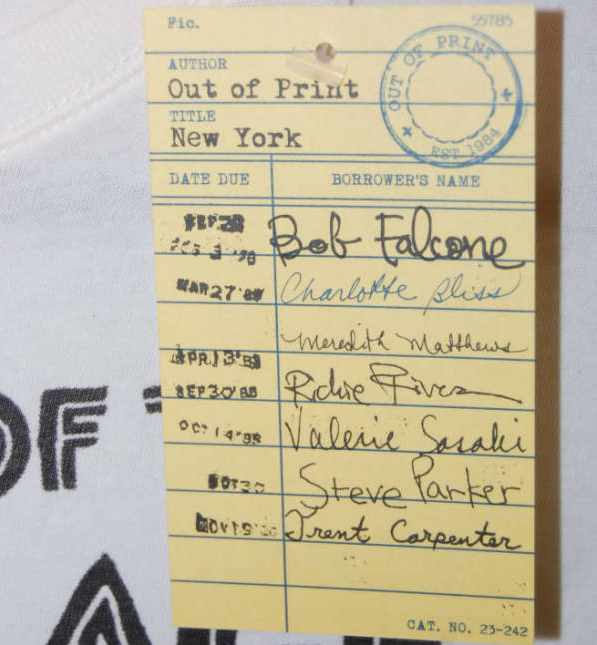 Fic. 55785
AUTHOR
Out of Print
TITLE
New York
OUT OF PRINT
EST. 1984
DATE DUE BORROWER'S NAME
SEP 28
Bob Falcone
MAR 27 Charlotte Bliss
Meredith Matthews
APR 13
SEP 30 Richie Rivera
OCT 14 Valerie Sasaki
Steve Parker
NOV 19 Trent Carpenter
CAT. NO. 23-242
OF